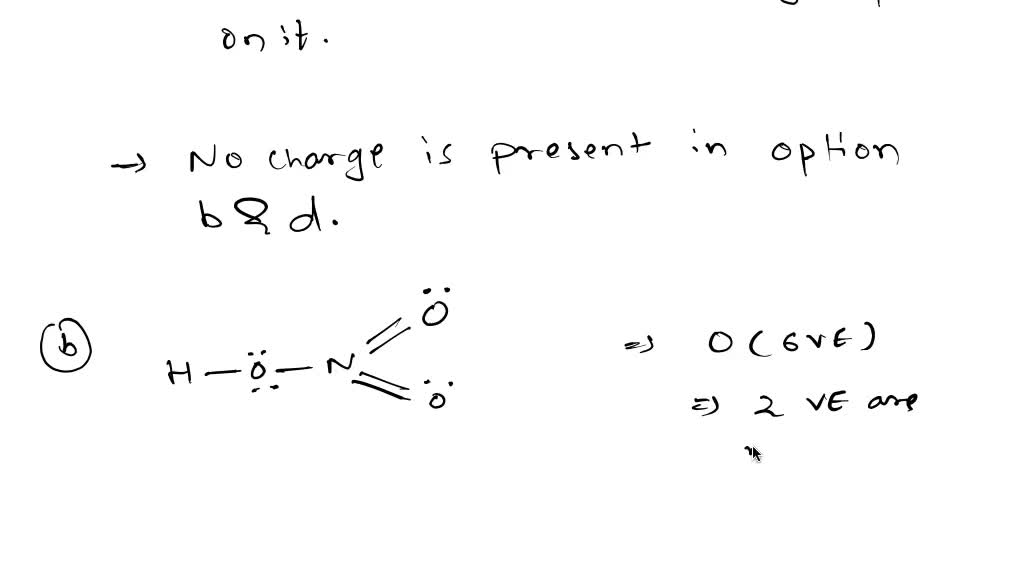 on it.
→ No charge is present in option
b & d.
(b) H — O — N = O = O
⇒ O (6 VE)
⇒ 2 VE are